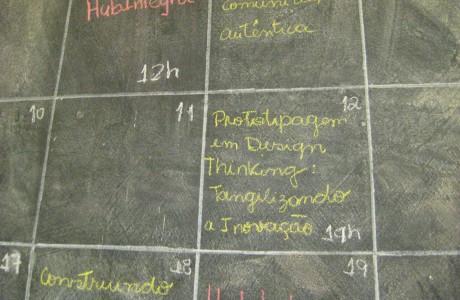 HubIntegra
comunicação
autêntica
12h
10
11
12
Prototipagem
em Design
Thinking:
Tangilizando
a Inovação 19h
17
18
19
Construindo